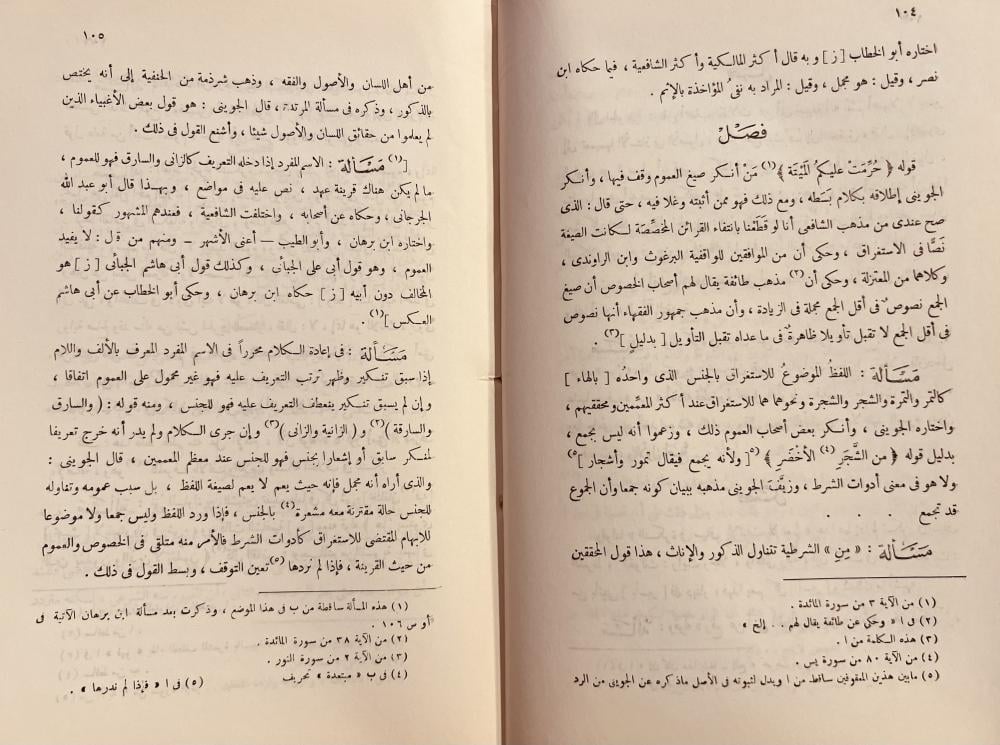 ١٠٤
اختاره أبو الخطاب [ ز ] و به قال أكثر المالكية وأكثر الشافعية ، فيما حكاه ابن
نصر ، وقيل : هو مجمل ، وقيل : المراد به نفىُ المؤاخذة بالإثم .
فصْلٌ
قوله ﴿ حُرِّمَتْ عليكمُ الْمَيْتَة ﴾(١) مَنْ أنكر صيغ العموم وقف فيها ، وأنكر
الجوينى إطلاقه بكلام بَسَطه ، ومع ذلك فهو ممن أثبته وغلا فيه ، حتى قال : الذى
صح عندى من مذهب الشافعى أنا لو قَطَعْنا بانتفاء القرائن المخصِّصة لكانت الصيغة
نَصًّا فى الاستغراق ، وحكى أن من الموافقين للواقفية البرغوث وابن الراوندى ،
وكلاهما من المعتزلة ، وحكى أن(٢) مذهب طائفة يقال لهم أصحاب الخصوص أن صيغ
الجمع نصوصٌ فى أقل الجمع مجملة فى الزيادة ، وأن مذهب جمهور الفقهاء أنها نصوص
فى أقل الجمع لا تقبل تأويلا ظاهرةٌ فى ما عداه تقبل التأويل [ بدليلٍ ](٣) .
مَسْألة : اللفظُ الموضوعُ للاستغراق بالجنس الذى واحدُه [ بالهاء ]
كالتمر والتمرة والشجر والشجرة ونحوهما هما للاستغراق عند أكثر المعمِّمين ومحققيهم ،
واختاره الجوينى ، وأنكر بعض أصحاب العموم ذلك ، وزعموا أنه ليس بجمع ،
بدليل قوله ﴿ من الشَّجَرِ (٤) الأخْضَرِ ﴾ (٥[ ولأنه يجمع فيقال تمور وأشجار ]٥)
ولا هو فى معنى أدوات الشرط ، وزيَّفَ الجوينى مذهبه ببيان كونه جمعا وأن الجموع
قد تجمع . . .
مَسْألة : « مِن » الشرطية تتناول الذكور والإناث ، هذا قول المحققين
(١) من الآية ٣ من سورة المائدة .
(٢) فى ا « وحكى عن طائفة يقال لهم . . إلخ »
(٣) هذه الكلمة من ا .
(٤) من الآية ٨٠ من سورة يس .
(٥) مابين هذين المعقوفين ساقط من ا ويدل لثبوته فى الأصل ماذكره عن الجوينى من الرد
١٠٥
من أهل اللسان والأصول والفقه ، وذهب شرذمة من الحنفية إلى أنه يختص
بالذكور ، وذكره فى مسألة المرتدة ، قال الجوينى : هو قول بعض الأغبياء الذين
لم يعلموا من حقائق اللسان والأصول شيئا ، وأشنع القول فى ذلك .
[(١) مَسْألة : الاسم المفرد إذا دخله التعريف كالزانى والسارق فهو للعموم ،
ما لم يكن هناك قرينة عهد ، نص عليه فى مواضع ، وبهذا قال أبو عبد الله
الجرجانى ، وحكاه عن أصحابه ، واختلفت الشافعية ، فعندهم المشهور كقولنا ،
واختاره ابن برهان ، وأبو الطيب – أعنى الأشهر – ومنهم من قال : لا يفيد
العموم ، وهو قول أبى على الجبائى ، وكذلك قول أبى هاشم الجبائى [ ز ] هو
المخالف دون أبيه [ ز ] حكاه ابن برهان ، وحكى أبو الخطاب عن أبى هاشم
العكس ](١) .
مَسْألة : فى إعادة الكلام محرراً فى الاسم المفرد المعرف بالألف واللام
إذا سبق تنكير وظهر ترتب التعريف عليه فهو غير محمول على العموم اتفاقا ،
وإن لم يسبق تنكير ينعطف التعريف عليه فهو للجنس ، ومنه قوله : ( والسارق
والسارقة )(٢) و ( الزانية والزانى )(٣) وإن جرى الكلام ولم يدر أنه خرج تعريفا
لمنكر سابق أو إشعارا بجنس فهو للجنس عند معظم المعممين ، قال الجوينى :
والذى أراه أنه مجمل فإنه حيث يعم لا يعم لصيغة اللفظ ، بل سبب عمومه وتفاوله
للجنس حالة مقترنة معه مشعرة(٤) بالجنس ، فإذا ورد اللفظ وليس جمعا ولا موضوعا
للابهام المقتضى للاستغراق كأدوات الشرط فالأمر منه متلقى فى الخصوص والعموم
من حيث القرينة ، فإذا لم نردها (٥) تعين التوقف ، وبسط القول فى ذلك .
(١) هذه المسألة ساقطة من ب فى هذا الموضع ، وذكرت بعد مسألة ابن برهان الآتية فى
أو س ١٠٦ .
(٢) من الآية ٣٨ من سورة المائدة .
(٣) من الآية ٢ من سورة النور .
(٤) فى ب « مبتعدة » تحريف (٥) فى ا « فإذا لم ندرها » .